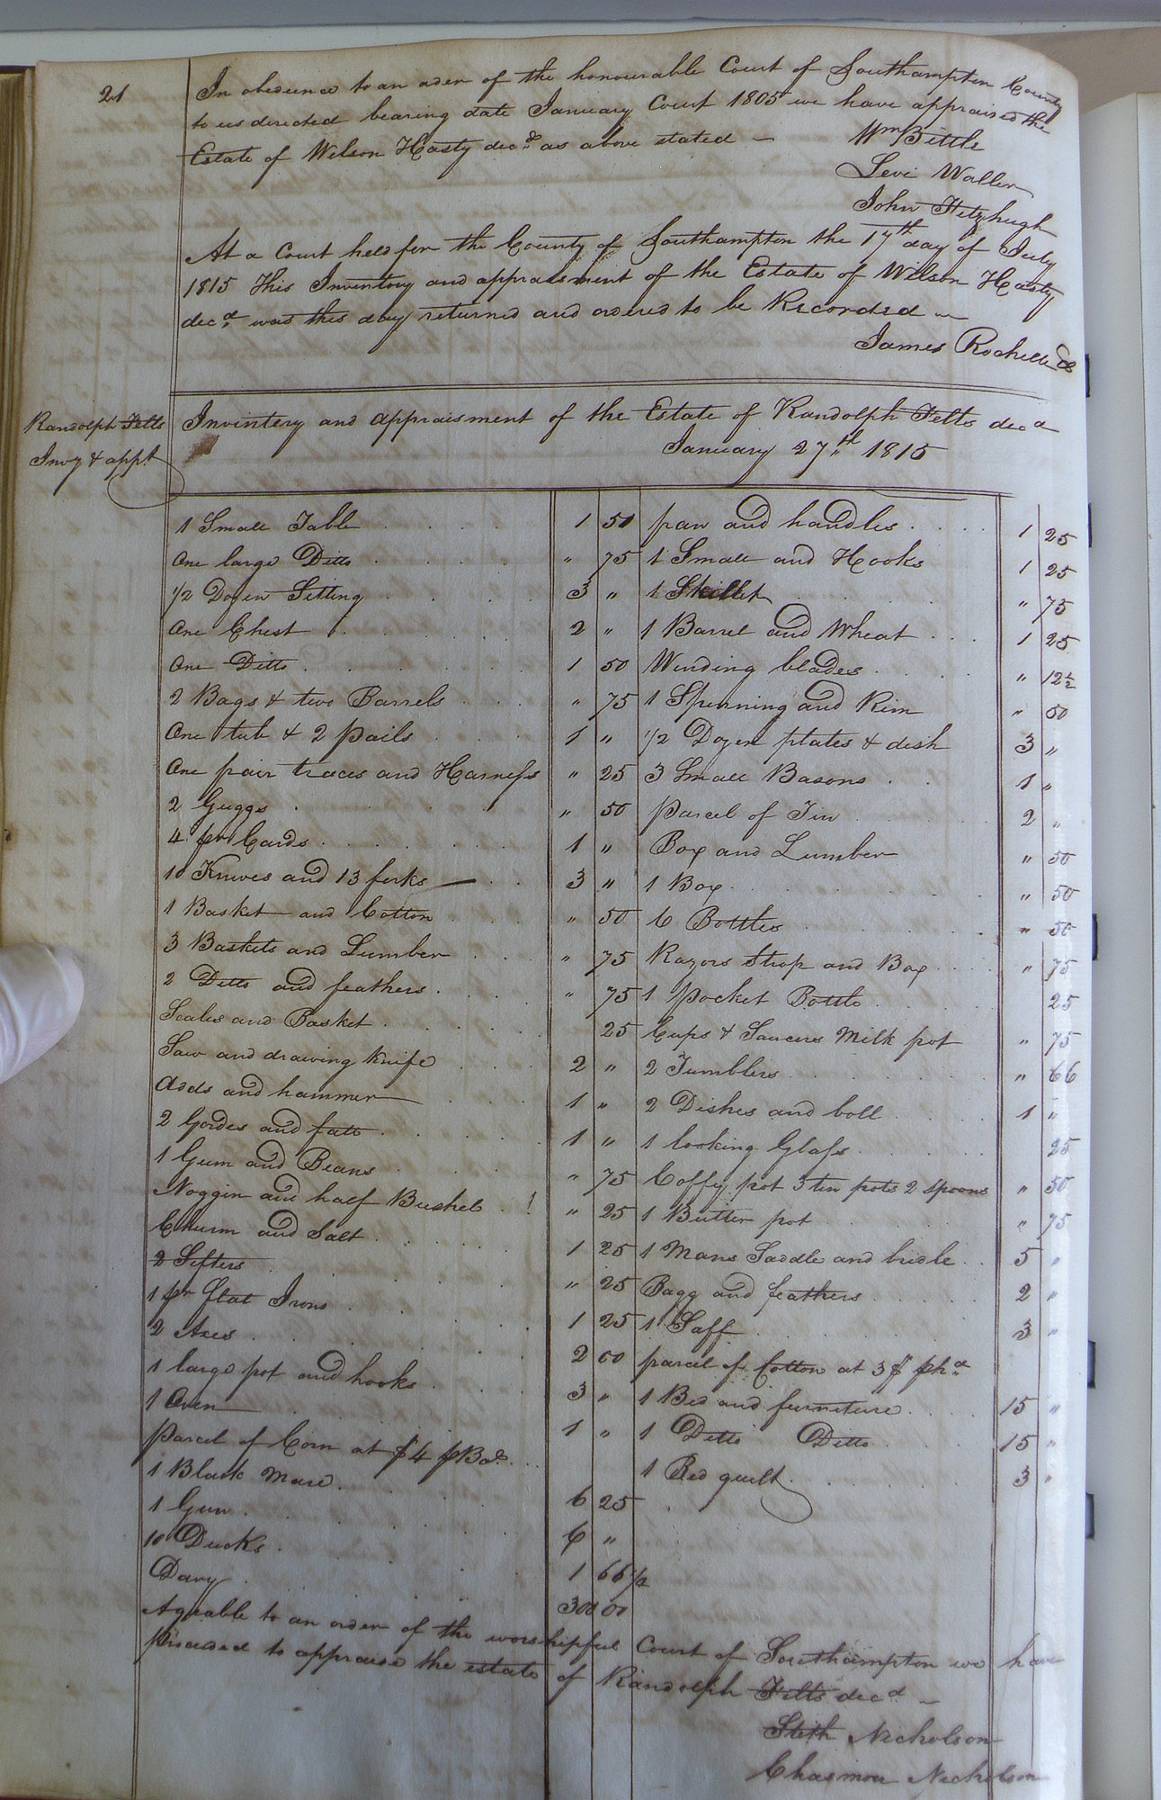 21
In obedience to an order of the honourable Court of Southampton County
to us directed bearing date January Court 1805 we have appraised the
Estate of Wilson Hasty decd as above stated —
Wm Bittle
Levi Waller
John Fitzhugh
At a Court held for the County of Southampton the 17th day of July
1815 This Inventory and appraisment of the Estate of Wilson Hasty
decd was this day returned and ordered to be Recorded —
James Rochelle
Randolph Felts
Invy & appt
Inventery and appraisment of the Estate of Randolph Felts decd
January 27th 1815
1 Small Table 1 50
One large Ditto " 75
1/2 Dozen Sitting 3 "
One Chest 2 "
One Ditto 1 50
2 Bags & two Barrels " 75
One tub & 2 pails 1 "
One pair traces and Harness " 25
2 Guggs " 50
4 pr Cards 1 "
10 Knives and 13 forks 3 "
1 Basket and Cotton " 50
3 Baskets and Lumber " 75
2 Ditto and feathers " 75
Scales and Basket 25
Saw and drawing knife 2 "
Adds and hammer 1 "
2 Gordes and fatt 1 "
1 Gum and Beans " 75
Noggin and half Bushel " 25
Churm and Salt 1 25
2 Sifters " 25
1 pr flat Irons 1 25
2 Axes 2 00
1 large pot and hooks 3 "
1 Oven 1 "
parcel of Corn at $4 p Bar
1 Black Mare 6 25
1 Gun 6 "
10 Ducks 1 66 1/2
Davy 300 00
pan and handles 1 25
1 Small and Hooks 1 25
1 Skillet " 75
1 Barrel and Wheat 1 25
Winding blades " 12 1/2
1 Spinning and Rim " 50
1/2 Dozen plates & dish 3 "
3 Small Basons 1 "
Parcel of Tin 2 "
Box and Lumber " 50
1 Box " 50
6 Bottles " 50
Razors Strop and Box " 75
1 pocket Bottle 25
Cups & Saucers Milk pot " 75
2 Tumblers " 66
2 Dishes and boll 1 "
1 looking Glass 25
Coffy pot 3 tin pots 2 spoons " 50
1 Butter pot " 75
1 Mans Saddle and bridle 5 "
Bagg and feathers 2 "
1 Saff 3 "
parcel of Cotton at 3$ p hd
1 Bed and furniture 15 "
1 Ditto Ditto 15 "
1 Bed quilt 3 "
Agrable to an order of the worshipful Court of Southampton we have
proceded to appraise the estate of Randolph Felts decd —
Stith Nicholson
Nicholson